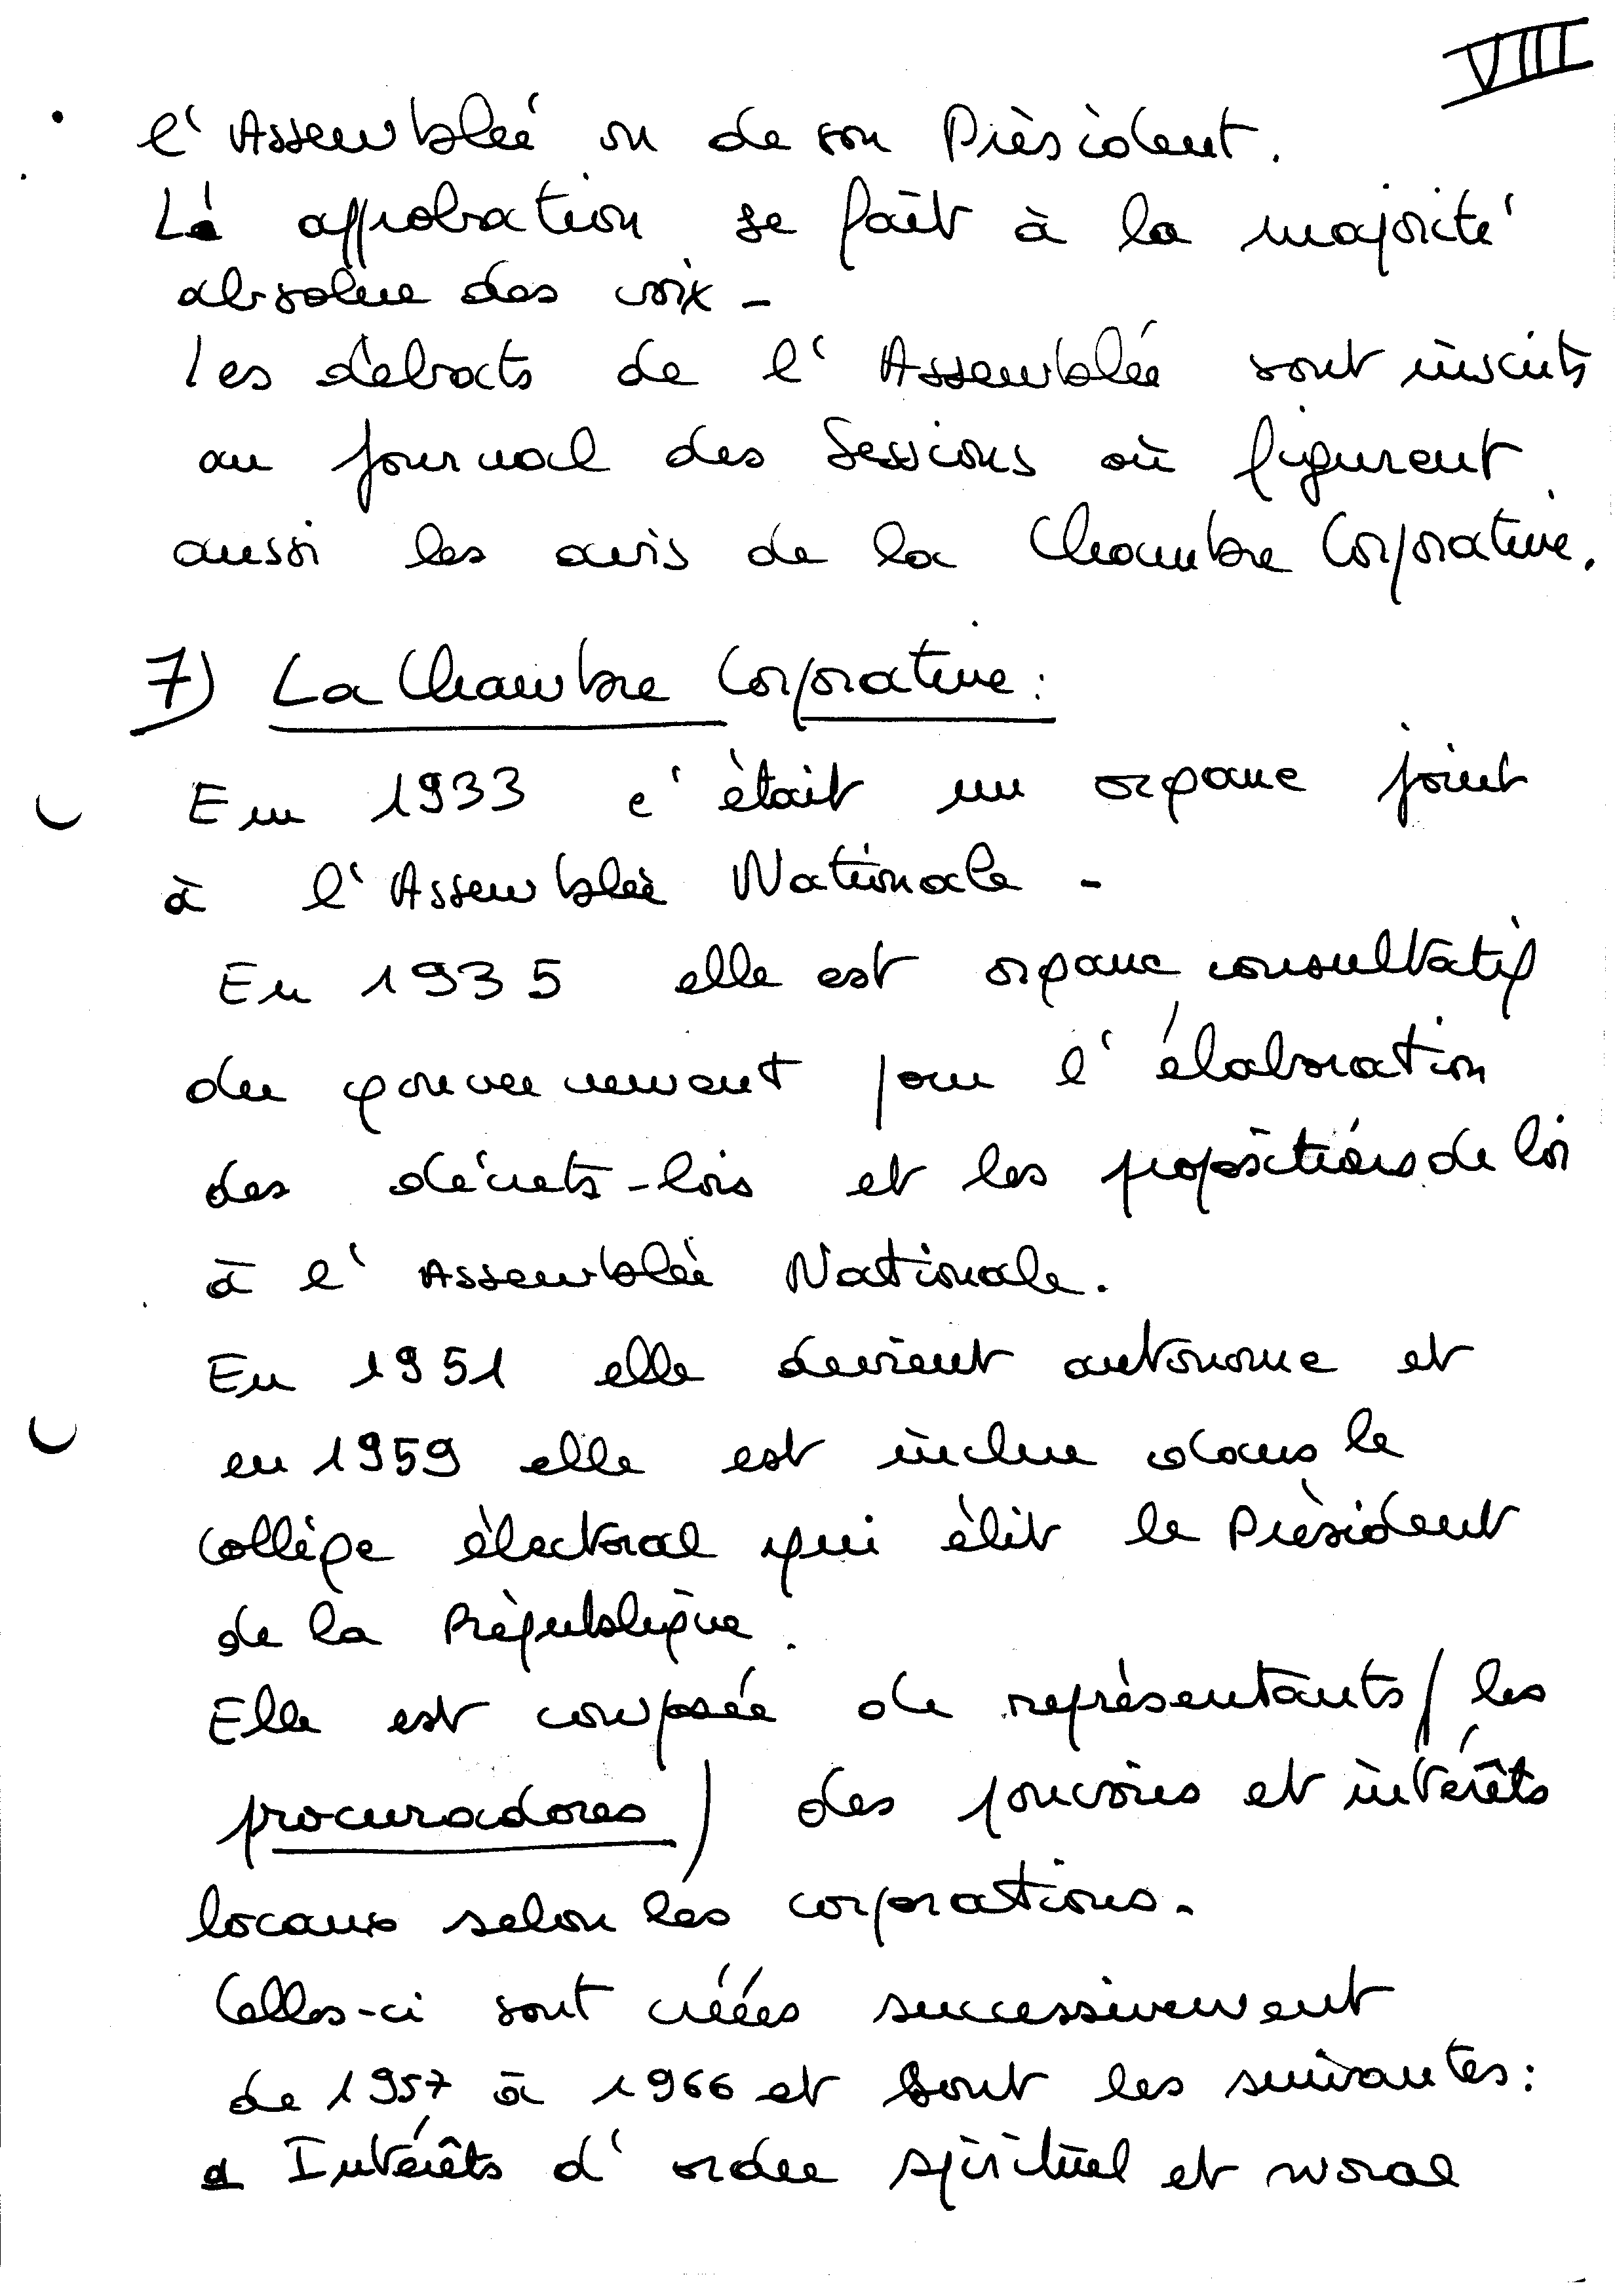 VIII
l'Assemblée ou de son Président.
L'approbation se fait à la majorité
absolue des voix -
Les débats de l'Assemblée sont inscrits
au journal des Sessions où figurent
aussi les avis de la Chambre Corporative.
7) La Chambre Corporative :
En 1933 c'était un organe joint
à l'Assemblée Nationale -
En 1935 elle est organe consultatif
du gouvernement pour l'élaboration
des décrets-lois et les propositions de loi
à l'Assemblée Nationale.
En 1951 elle devient autonome et
en 1959 elle est inclue dans le
collège électoral qui élit le Président
de la République.
Elle est composée de représentants (les
procuradores) des pouvoirs et intérêts
locaux selon les corporations.
Celles-ci sont créées successivement
de 1957 à 1966 et sont les suivantes :
a Intérêts d'ordre spirituel et moral